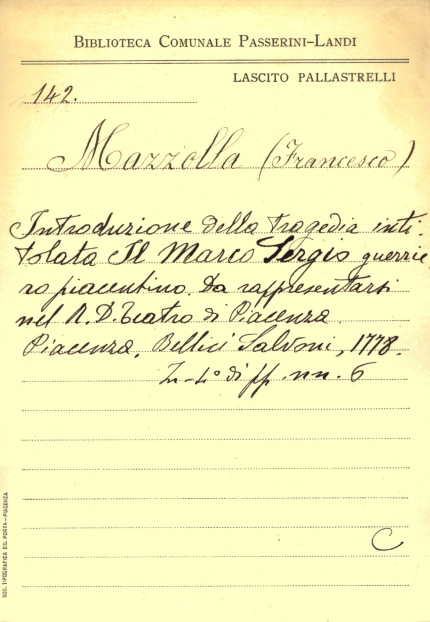 BIBLIOTECA COMUNALE PASSERINI-LANDI
LASCITO PALLASTRELLI
142.
Mazzolla (Francesco)
Introduzione della tragedia inti-
tolata Il Marco Sergio guerrie
ro piacentino. Da rappresentarsi
nel R. D. Teatro di Piacenza
Piacenza, Bellici Salvoni, 1778.
In-4º di pp. nn. 6
C
SOC. TIPOGRAFICA ED. PORTA - PIACENZA